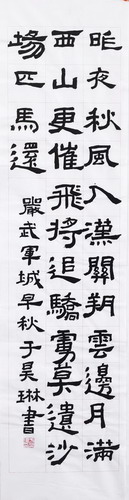 昨夜秋風入漢關朔雲邊月滿
西山更催飛將追驕虜莫遣沙
場匹馬還
嚴武軍城早秋于昊琳書